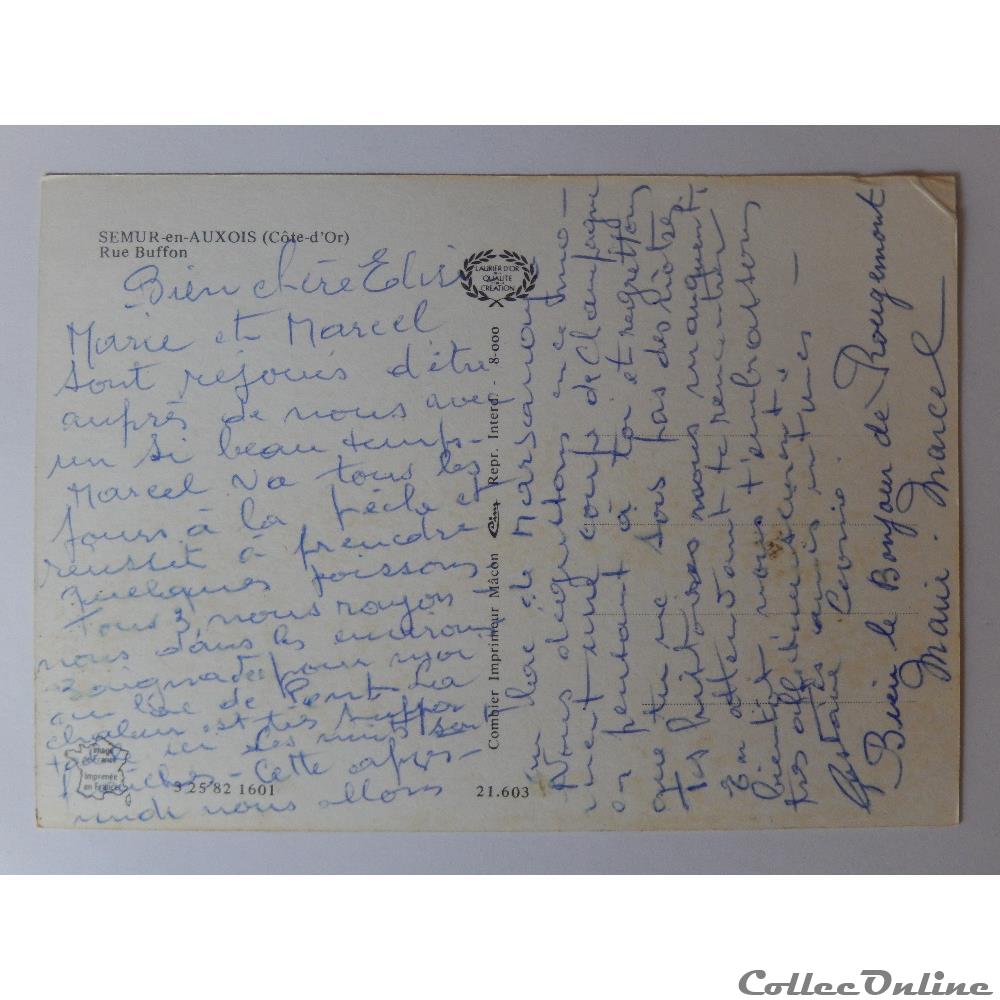 SEMUR-en-AUXOIS (Côte-d'Or)
Rue Buffon
Bien chère
Marie et Marcel
Sont rejouis d'être
auprès de nous avec
un si beau temps-
Marcel va tous les
jours à la pêche et
reussit à prendre
quelques poissons
Tous 3, nous
nous dans les environs
pour moi
au lac de Pont La
chaleur est très
ici Les nuits son
fraiches - Cette après-
midi nous allons
Image
de France
Imprimée
en France
3 25 82 1601
21.603
LAURIER D'OR
QUALITE
CREATION
Combier Imprimeur Mâcon Cim Repr. Interd. - 8-000
au lac de
Nous degustons en ce mo-
ment une coupe de Champagne
en pensant à toi et regrettons
que tu ne sois pas des nôtres.
Tes histoires nous manquent,
En attendant te rencontrer
bientôt nous t'embrassons
très affectueusement
amis intimes -
Bien le Bonjour de Rougemont
Marie. Marcel
CollecOnline